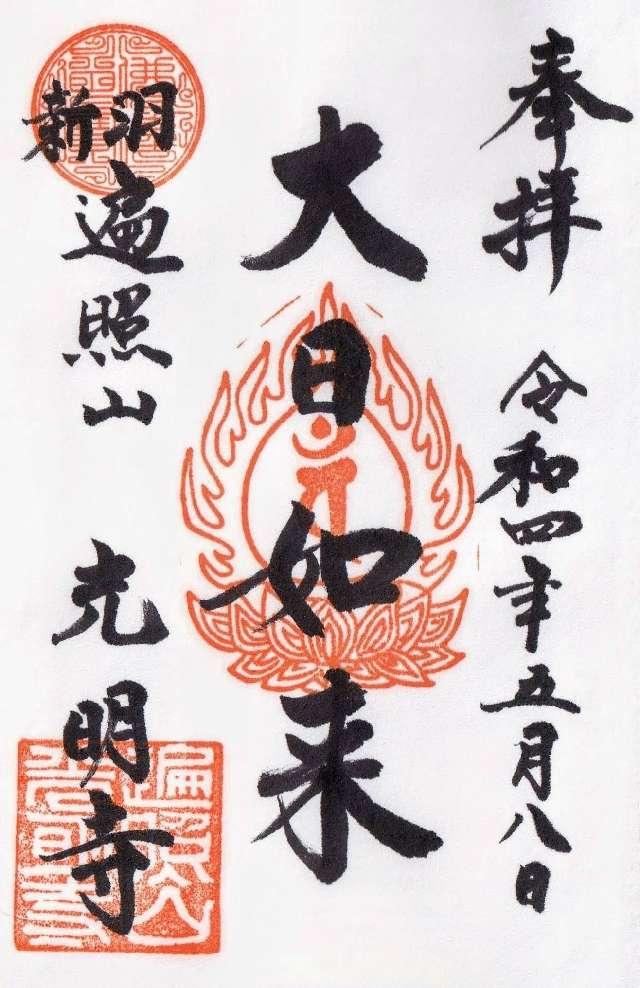 奉拝
令和四年五月八日
大日如来
新羽
遍照山
光明寺